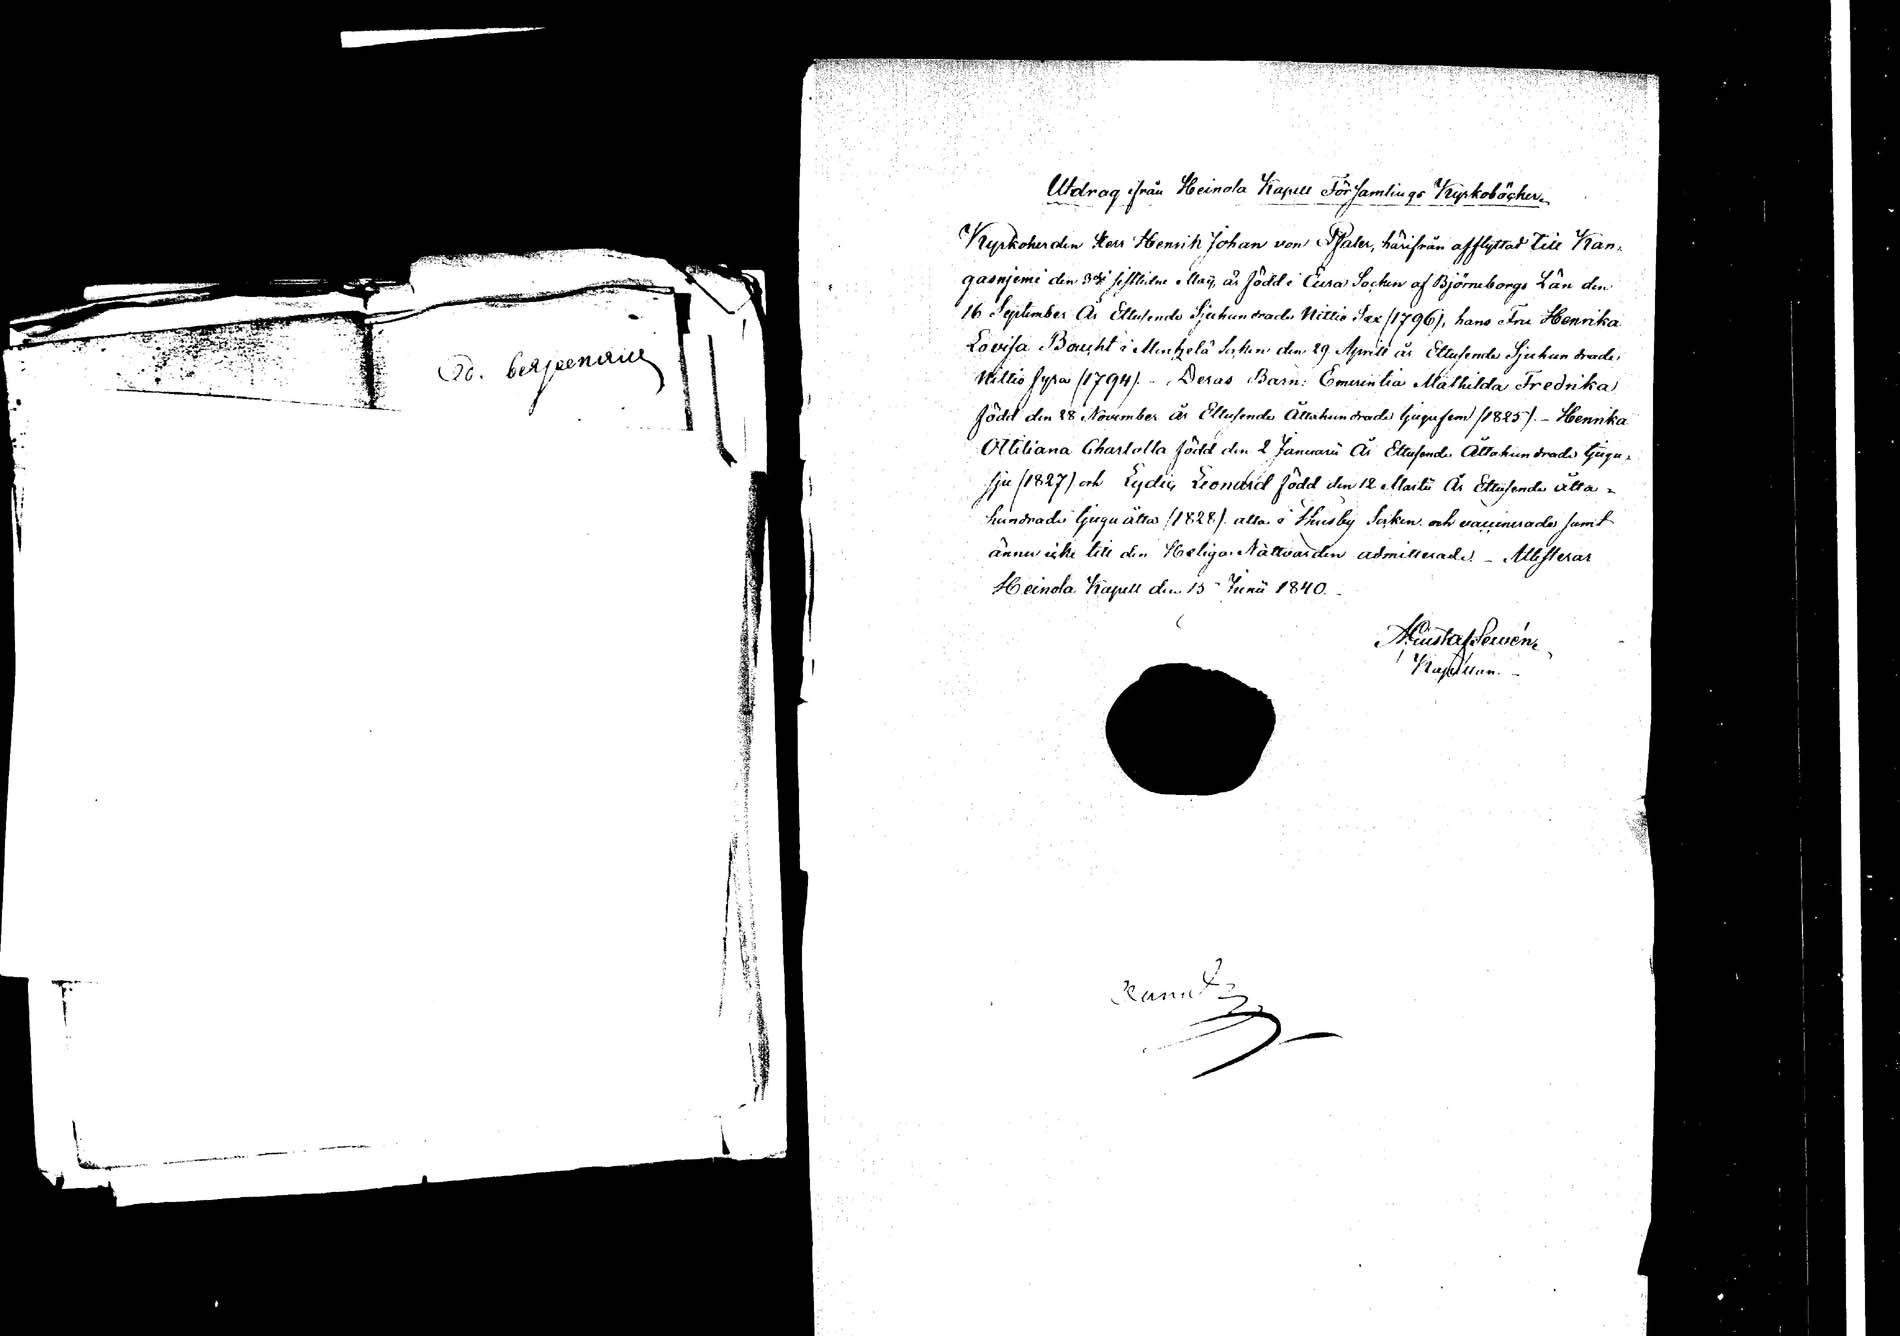 Utdrag ifrån Heinola Kapell Församlings Kyrkoböcker.
Kyrkoherden Herr Henrik Johan von Pfaler, härifrån afflyttad till Kan-
gasnjemi den sistledne Maij, är född i Eura Socken af Björneborgs Län den
16 September År Ettusende Sjuhundrade Nittio Sex (1796), hans Fru Henrika
Lovisa Bought i Menhelä Socken den 29 Aprill år Ettusende Sjuhundrade
Nittio fyra (1794). - Deras Barn: Emerentia Mathilda Fredrika
född den 28 November år Ettusende Åttahundrade tjugufem (1825). - Henrika
Ottiliana Charlotta född den 2 Januarii År Ettusende Åttahundrade tjugu-
sju (1827) och Lydig Leonard född den 12 Martii År Ettusende åtta-
hundrade tjuguåtta (1828). alla i Thusby Socken och vaccinerade samt
ännu icke till den Heliga Nattvarden admitterade. - Attesterar
Heinola Kapell den 15 Junii 1840.
Gustaf Servén
Kapellan.